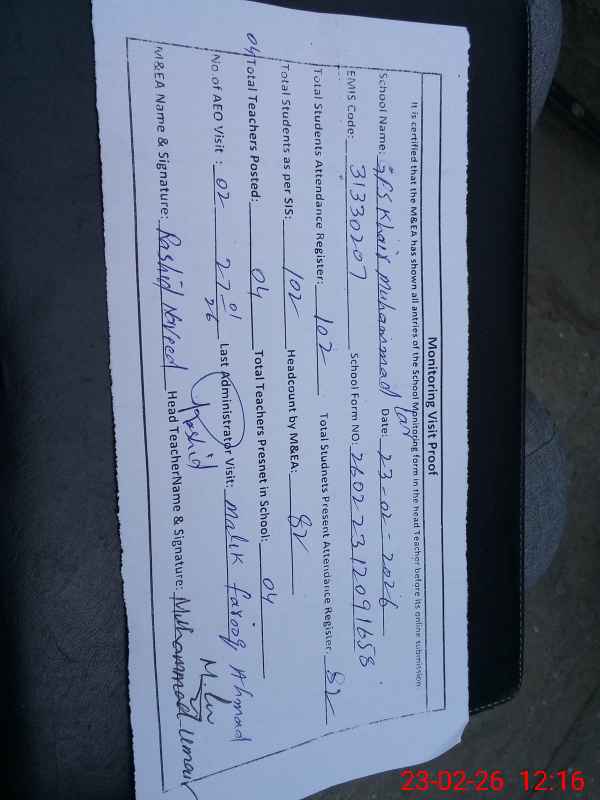 Monitoring Visit Proof
It is certified that the M&EA has shown all antries of the School Monitoring form in the head Teacher before its online submission
School Name: GPS Khair Muhammad Lar Date: 23-02-2026
EMIS Code: 31330207 School Form NO: 26022312091658
Total Students Attendance Register: 102 Total Studnets Present Attendance Register: 82
Total Students as per SIS: 102 Headcount by M&EA: 82
04 Total Teachers Posted: 04 Total Teachers Presnet in School: 04
No.of AEO Visit : 02 27 01 26 Last Administrator Visit: Malik farooq Ahmad
M&EA Name & Signature: Rashid Naveed Rashid Head TeacherName & Signature: Muhammad Umair
23-02-26 12:16